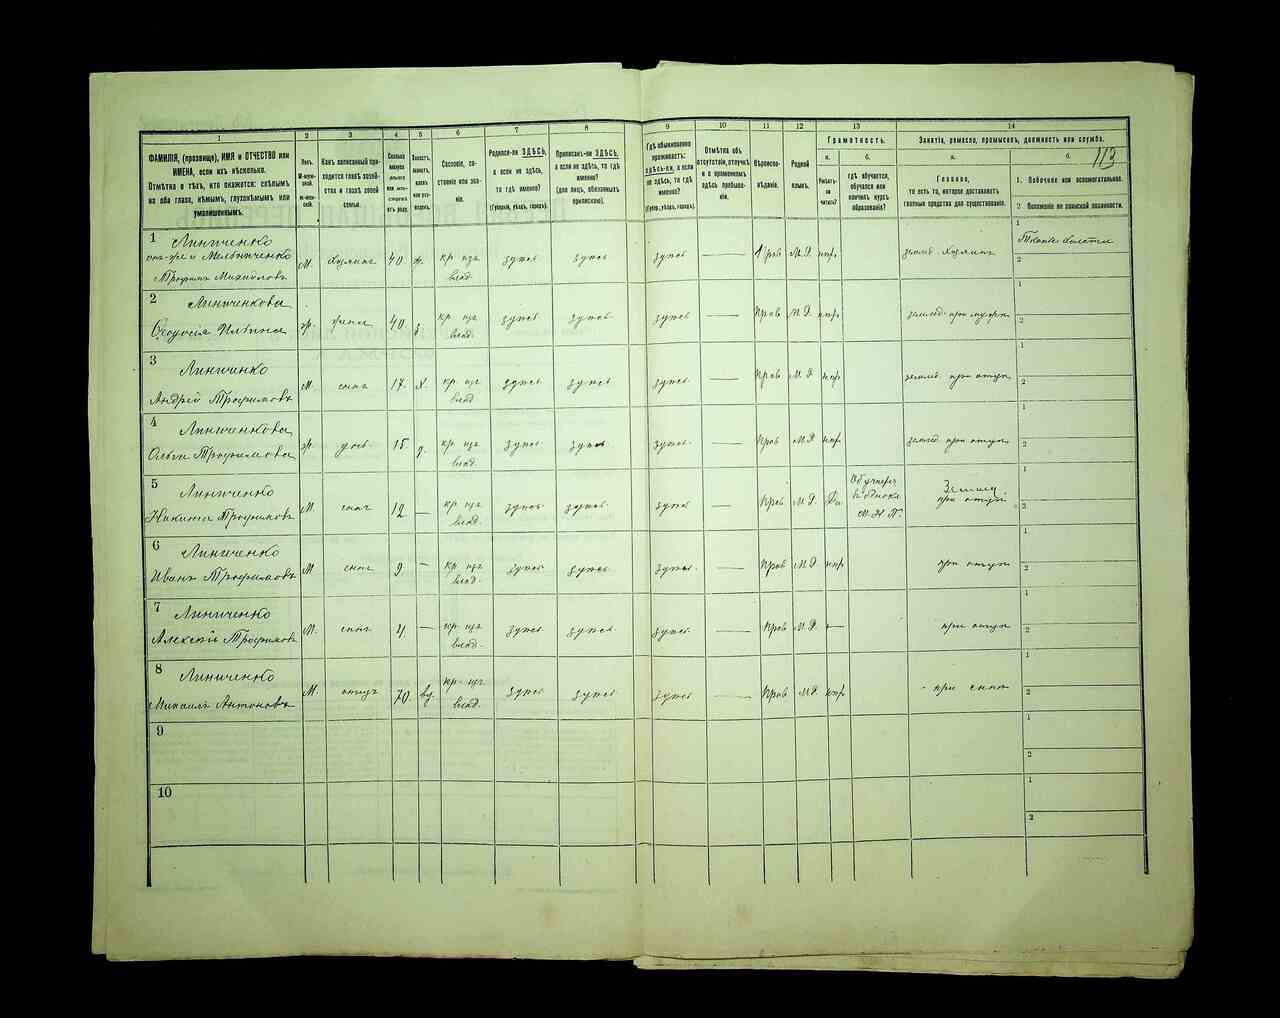 1 2 3 4 5 6 7 8 9 10 11 12 13 14
ФАМИЛІЯ, (прозвище), ИМЯ и ОТЧЕСТВО или
ИМЕНА, если ихъ нѣсколько.
Отмѣтка о тѣхъ, кто окажется: слѣпымъ
на оба глаза, нѣмымъ, глухонѣмымъ или
умалишеннымъ.
Полъ.
М-мужской.
Ж-женскій.
Какъ записанный приходится
главѣ хозяйства
и главѣ своей
семьи.
Сословіе, состояніе
или званіе.
Родился-ли ЗДѢСЬ,
а если не здѣсь,
то гдѣ именно?
(Губернія, уѣздъ, городъ).
Приписанъ-ли ЗДѢСЬ,
а если не здѣсь, то гдѣ
именно?
(для лицъ, обязанныхъ
припискою).
Гдѣ обыкновенно
проживаетъ:
здѣсь-ли, а если
не здѣсь, то гдѣ
именно?
(Губер., уѣздъ, городъ).
Отмѣтка объ
отсутствіи, отлучкѣ
и о временномъ
здѣсь пребываніи.
Вѣроисповѣданіе.
Родной
языкъ.
Грамотность.
а.
Умѣетъ-ли
читать?
б.
гдѣ обучается,
обучался или
кончилъ курсъ
образованія?
Занятіе, ремесло, промыселъ, должность или служба.
а.
Главное,
то есть то, которое доставляетъ
главныя средства для существованія.
б.
113
1. Побочное или вспомогательное.
2 Положеніе по воинской повинности.
1 Линиченко
он-же и Мельниченко
Трофимъ Михайловъ
М. Хозяинъ 40. ж. кр. изъ влад. здѣсь здѣсь здѣсь Прав М.Р. нѣт землед. Хозяинъ
1
2
2 Линиченкова
Феодосія Ильина
ж. жена 40. з. кр. изъ влад. здѣсь здѣсь здѣсь — Прав М.Р. нѣт земледѣл. при мужѣ
1
2
3 Линиченко
Андрей Трофимовъ
М. сынъ 17. х. кр. изъ влад. здѣсь здѣсь здѣсь — Прав М.Р. нѣт земледѣл. при отцѣ
1
2
4 Линиченкова
Ольга Трофимова
ж. дочь 15. д. кр. изъ влад. здѣсь здѣсь здѣсь — Прав М.Р. нѣт земледѣл. при отцѣ
1
2
5 Линиченко
Никита Трофимовъ
М. сынъ 12 — кр. изъ влад. здѣсь здѣсь здѣсь — Прав М.Р. Да М.Н.П. при отцѣ
1
2
6 Линиченко
Иванъ Трофимовъ
М сынъ 9. — кр. изъ влад. здѣсь здѣсь здѣсь — Прав М.Р. нѣт при отцѣ
1
2
7 Линиченко
Алексѣй Трофимовъ
М. сынъ 4. — кр. изъ влад. здѣсь здѣсь здѣсь — Прав М.Р. — при отцѣ
1
2
8 Линиченко
Михаилъ Антоновъ
М. отецъ 70. вд. кр. изъ влад. здѣсь здѣсь здѣсь — Прав М.Р. нѣт при сынѣ
1
2
9
1
2
10
1
2